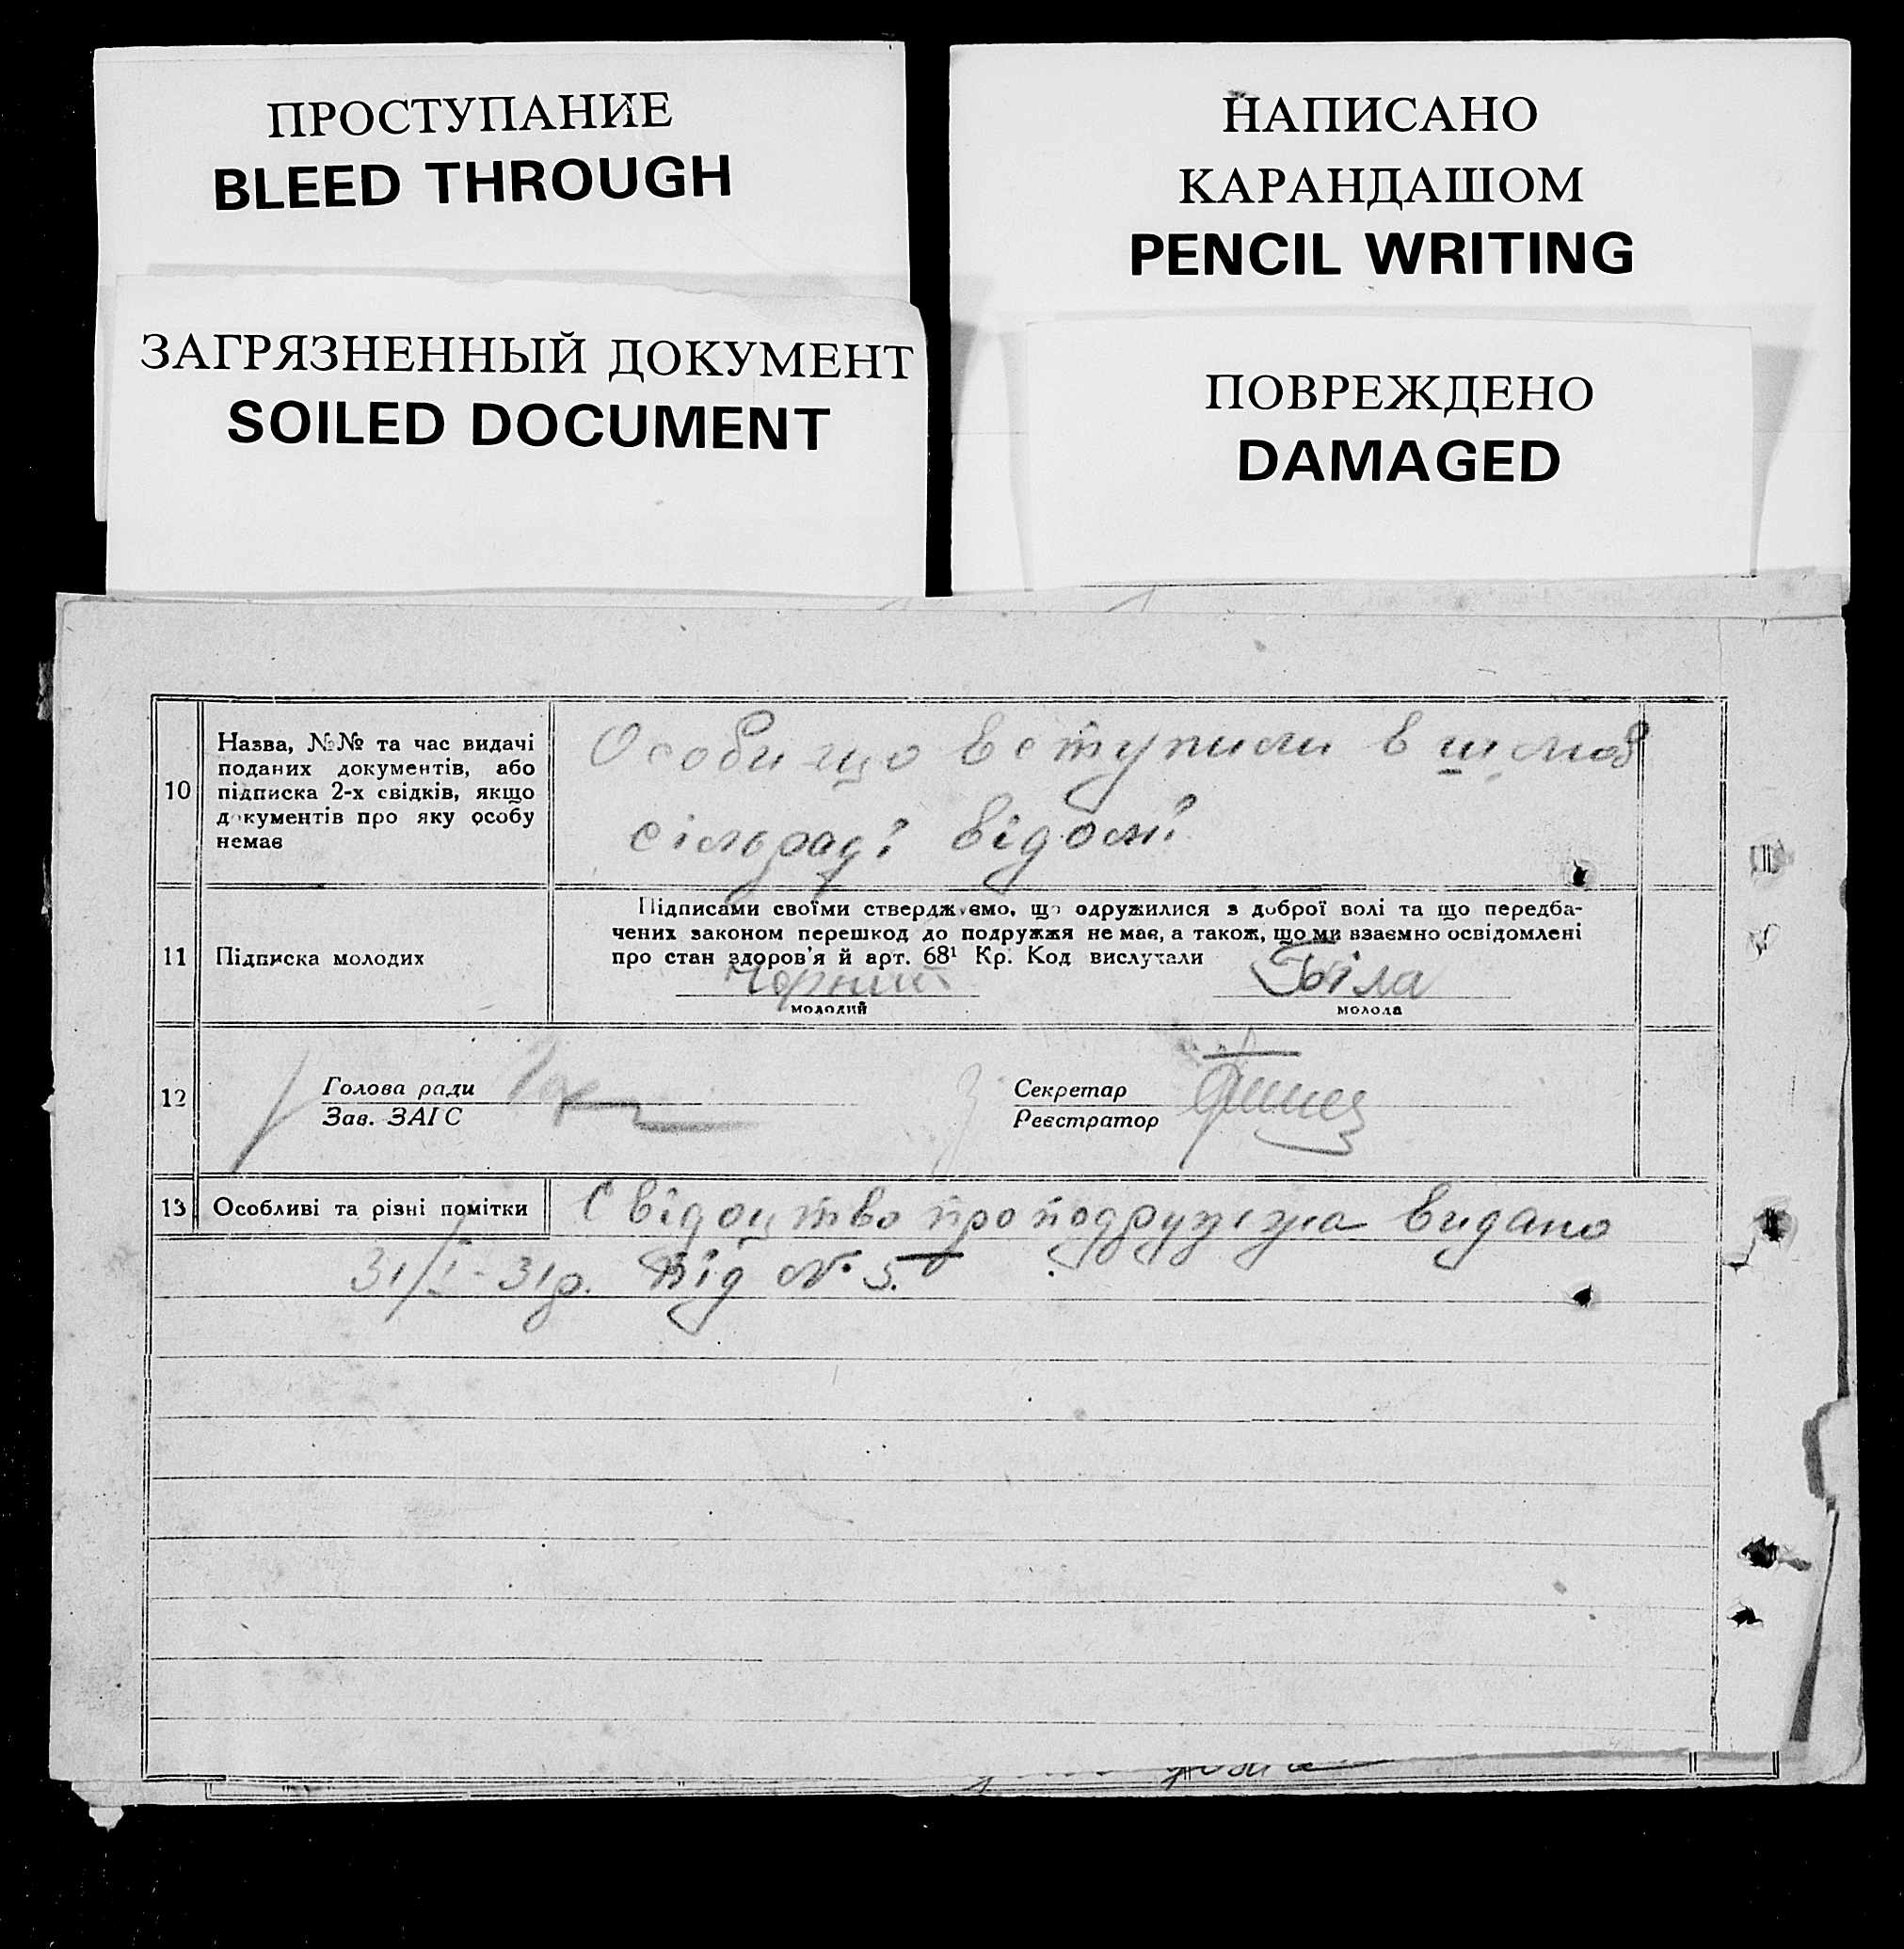 ПРОСТУПАНИЕ
BLEED THROUGH
НАПИСАНО
КАРАНДАШОМ
PENCIL WRITING
ЗАГРЯЗНЕННЫЙ ДОКУМЕНТ
SOILED DOCUMENT
ПОВРЕЖДЕНО
DAMAGED
10
Назва, №№ та час видачі
поданих документів, або
підписка 2-х свідків, якщо
документів про яку особу
немає
Особи що вступили в шлюб
сільраді відомі
11
Підписка молодих
Підписами своїми стверджуємо, що одружилися з доброї волі та що передба-
чених законом перешкод до подружжя не має, а також, що ми взаємно освідомлені
про стан здоров'я й арт. 68¹ Кр. Код вислухали
Чорний
молодий
Біла
молода
12
Голова ради
Зав. ЗАГС
Секретар
Реєстратор
13
Особливі та різні помітки
Свідоцтво про подружжа видано
31/I-31р. Під № 5.